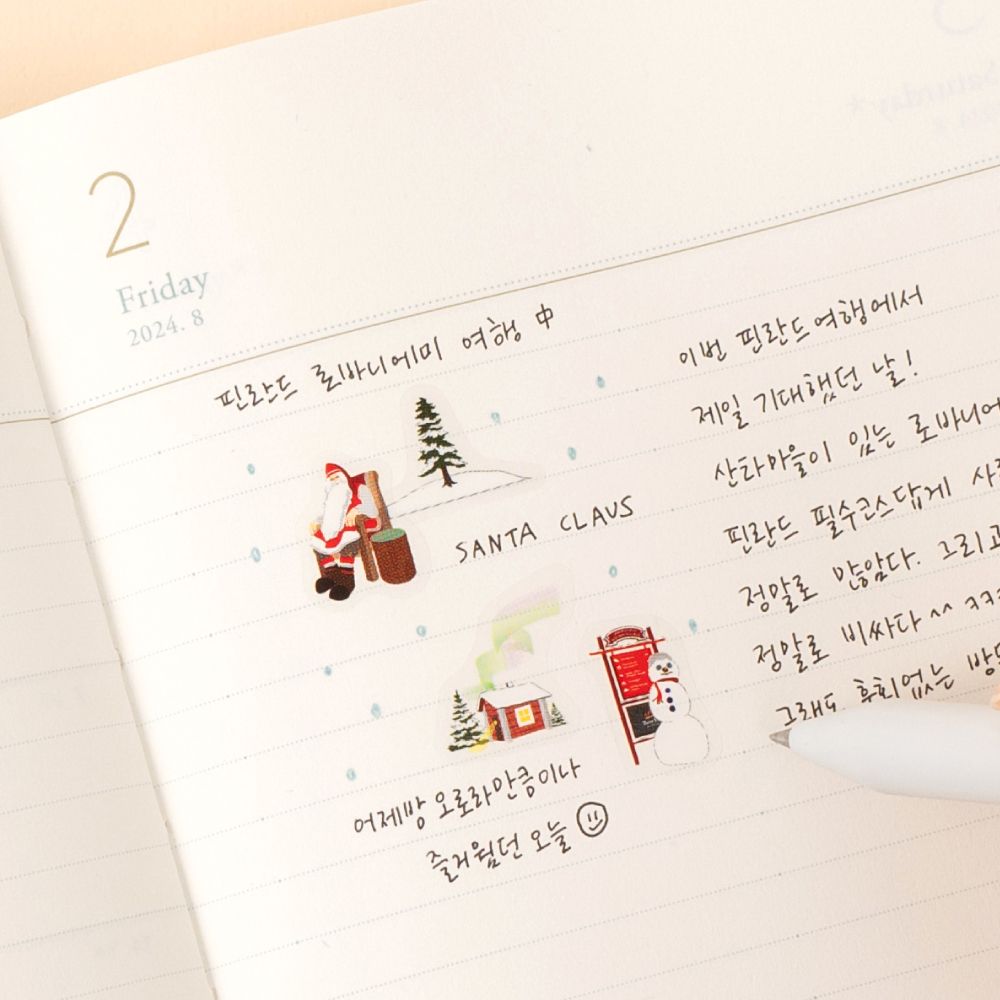 2
Friday
2024. 8
핀란드 로바니에미 여행 中
SANTA CLAUS
어제밤 오로라만큼이나
즐거웠던 오늘
이번 핀란드여행에서
제일 기대했던 날!
산타마을이 있는 로바니에
핀란드 필수코스답게 사
정말로 많았다. 그리고
정말로 비싸다^^ ㅋㅋ
그래도 후회없는 방